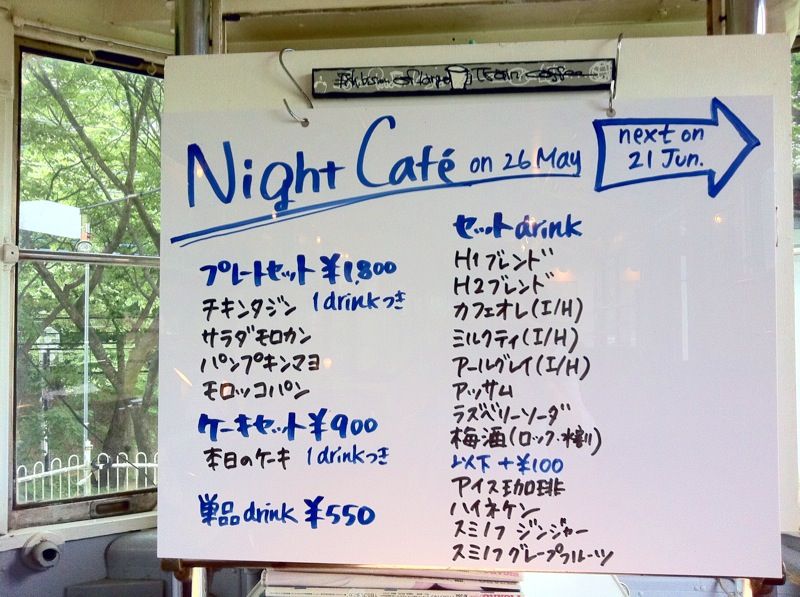 Train coffee
Night Café on 26 May
next on
21 Jun.
プレートセット ¥1,800
チキンタジン 1drinkつき
サラダモロカン
パンプキンマヨ
モロッコパン
ケーキセット ¥900
本日のケーキ 1drinkつき
単品drink ¥550
セットdrink
H1ブレンド
H2ブレンド
カフェオレ(I/H)
ミルクティ(I/H)
アールグレイ(I/H)
アッサム
ラズベリーソーダ
梅酒(ロック・水割)
以下+¥100
アイス珈琲
ハイネケン
スミノフ ジンジャー
スミノフグレープフルーツ